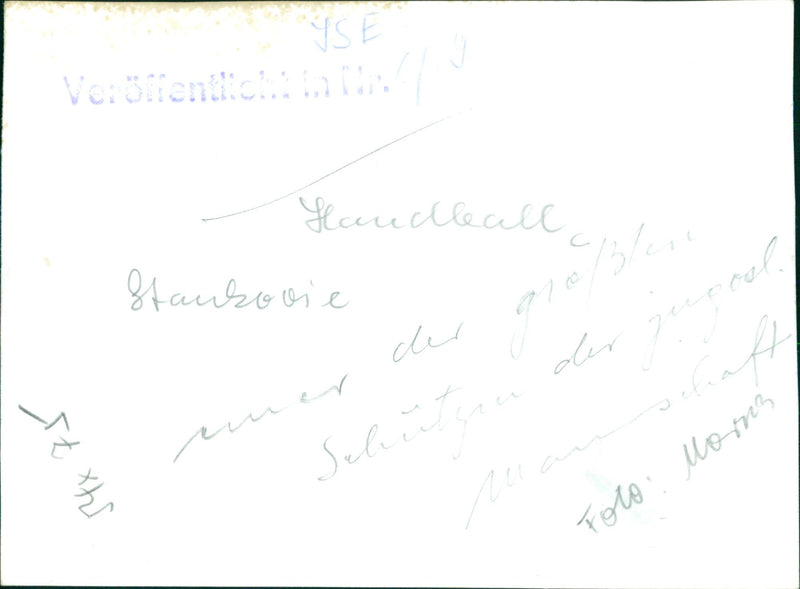 JSE
Veröffentlicht in Nr.
Handball
Stankovic
einer der größten
Schützen der jugosl.
Mannschaft
Foto: